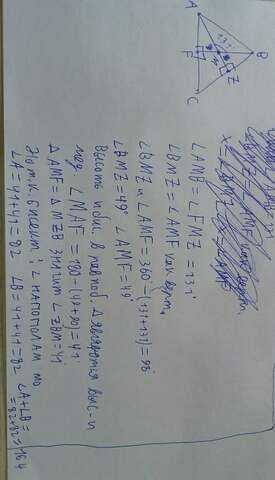 A
B
C
F
Z
M
131
∠AMB = ∠FMZ = 131°
∠BMZ = ∠AMF как верт.
∠BMZ и ∠AMF = 360 - (131+131) = 98°
∠BMZ = 49° ∠AMF = 49°
Высоты и бис. в равноб. Δ являются выс-и
мед. ∠MAF = 180 - (49+90) = 41°
ΔAMF = ΔMZB значит ∠ZBM = 41
Но т.к бисект. ∠ напополам то
∠A = 41+41 = 82 ∠B = 41+41 = 82 ∠A+∠B =
= 82+82 = 164